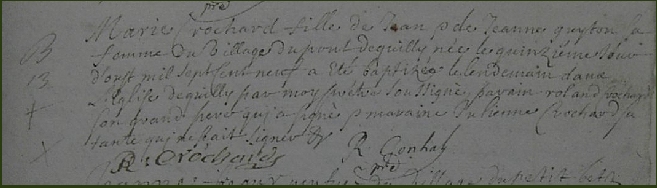 Marie Crochard fille de Jean p de Jeanne guyton sa
B femme du village du pont dequilly née le quinzieme jour
13 d'oust mil sept sent neuf a eté baptizée le lendemain dans
leglise dequilly par moy pretre soussigné parain roland crochard
son grand pere qui a signé p maraine Julienne Crochard sa
tante qui ne scait signer
R Crochard R Gonhay
pre
du village du petit